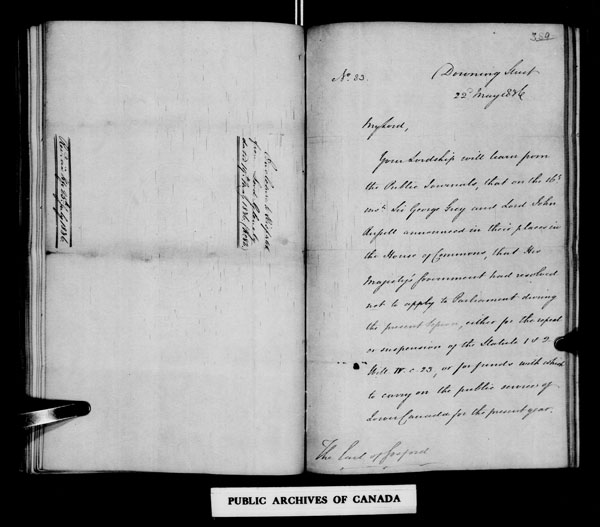 359
No. 83.
Downing Street
22d May 1836
My Lord,
Your Lordship will learn from
the Public Journals, that on the 16th
inst. Sir George Grey and Lord John
Russell announced in their places in
the House of Commons, that His
Majesty's Government had resolved
not to apply to Parliament during
the present Session, either for the repeal
or suspension of the Statute 1 & 2
Will. IV c. 23, or for funds with which
to carry on the public service of
Lower Canada for the present year.
The Earl of Gosford
PUBLIC ARCHIVES OF CANADA